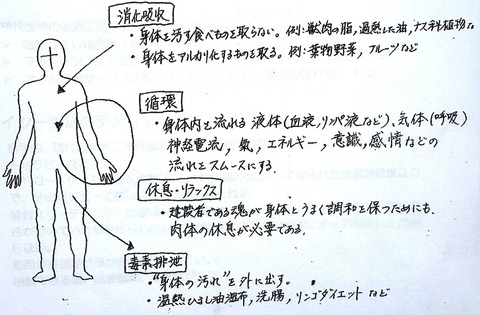 消化吸収
・身体を汚す食べものを取らない。例:獣肉の脂,過熱した油,ナス科植物な
・身体をアルカリ化するものを取る。例:葉物野菜,フルーツなど
循環
・身体内を流れる 液体(血液,リンパ液など)、気体(呼吸)
神経電流,氣,エネルギー,意識,感情などの
流れをスムースにする.
休息・リラックス
・建設者である魂が身体とうまく調和を保つためにも、
肉体の休息が必要である.
毒素排泄
・"身体の汚れ"を外に出す。
・温熱ひまし油湿布,洗腸,リンゴダイエット など